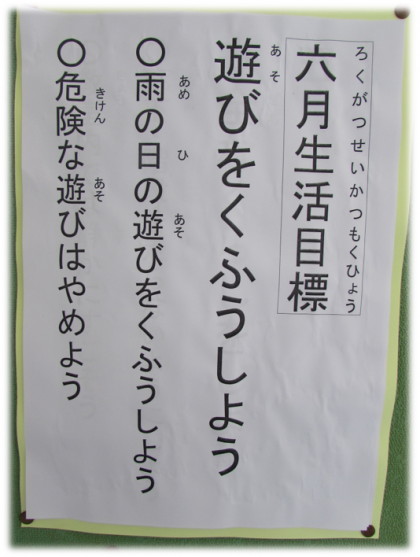 ろくがつせいかつもくひょう
六月生活目標
あそ
遊びをくふうしよう
あめ ひ あそ
〇雨の日の遊びをくふうしよう
きけん あそ
〇危険な遊びはやめよう